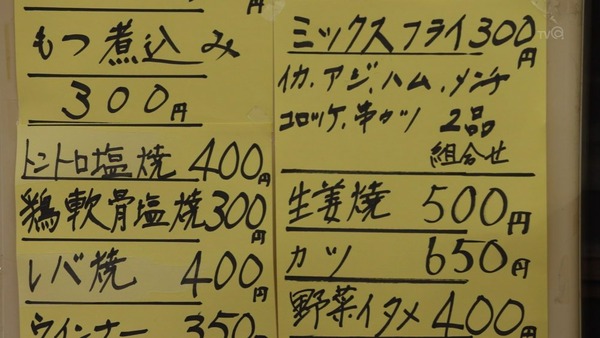 円
もつ煮込み
300円
トントロ塩焼 400円
鶏軟骨塩焼300円
レバ焼 400円
ウインナー 350円
ミックスフライ300円
イカ.アジ.ハム.メンチ
コロッケ.串カツ 2品
組合せ
生姜焼 500円
カツ 650円
野菜イタメ400円